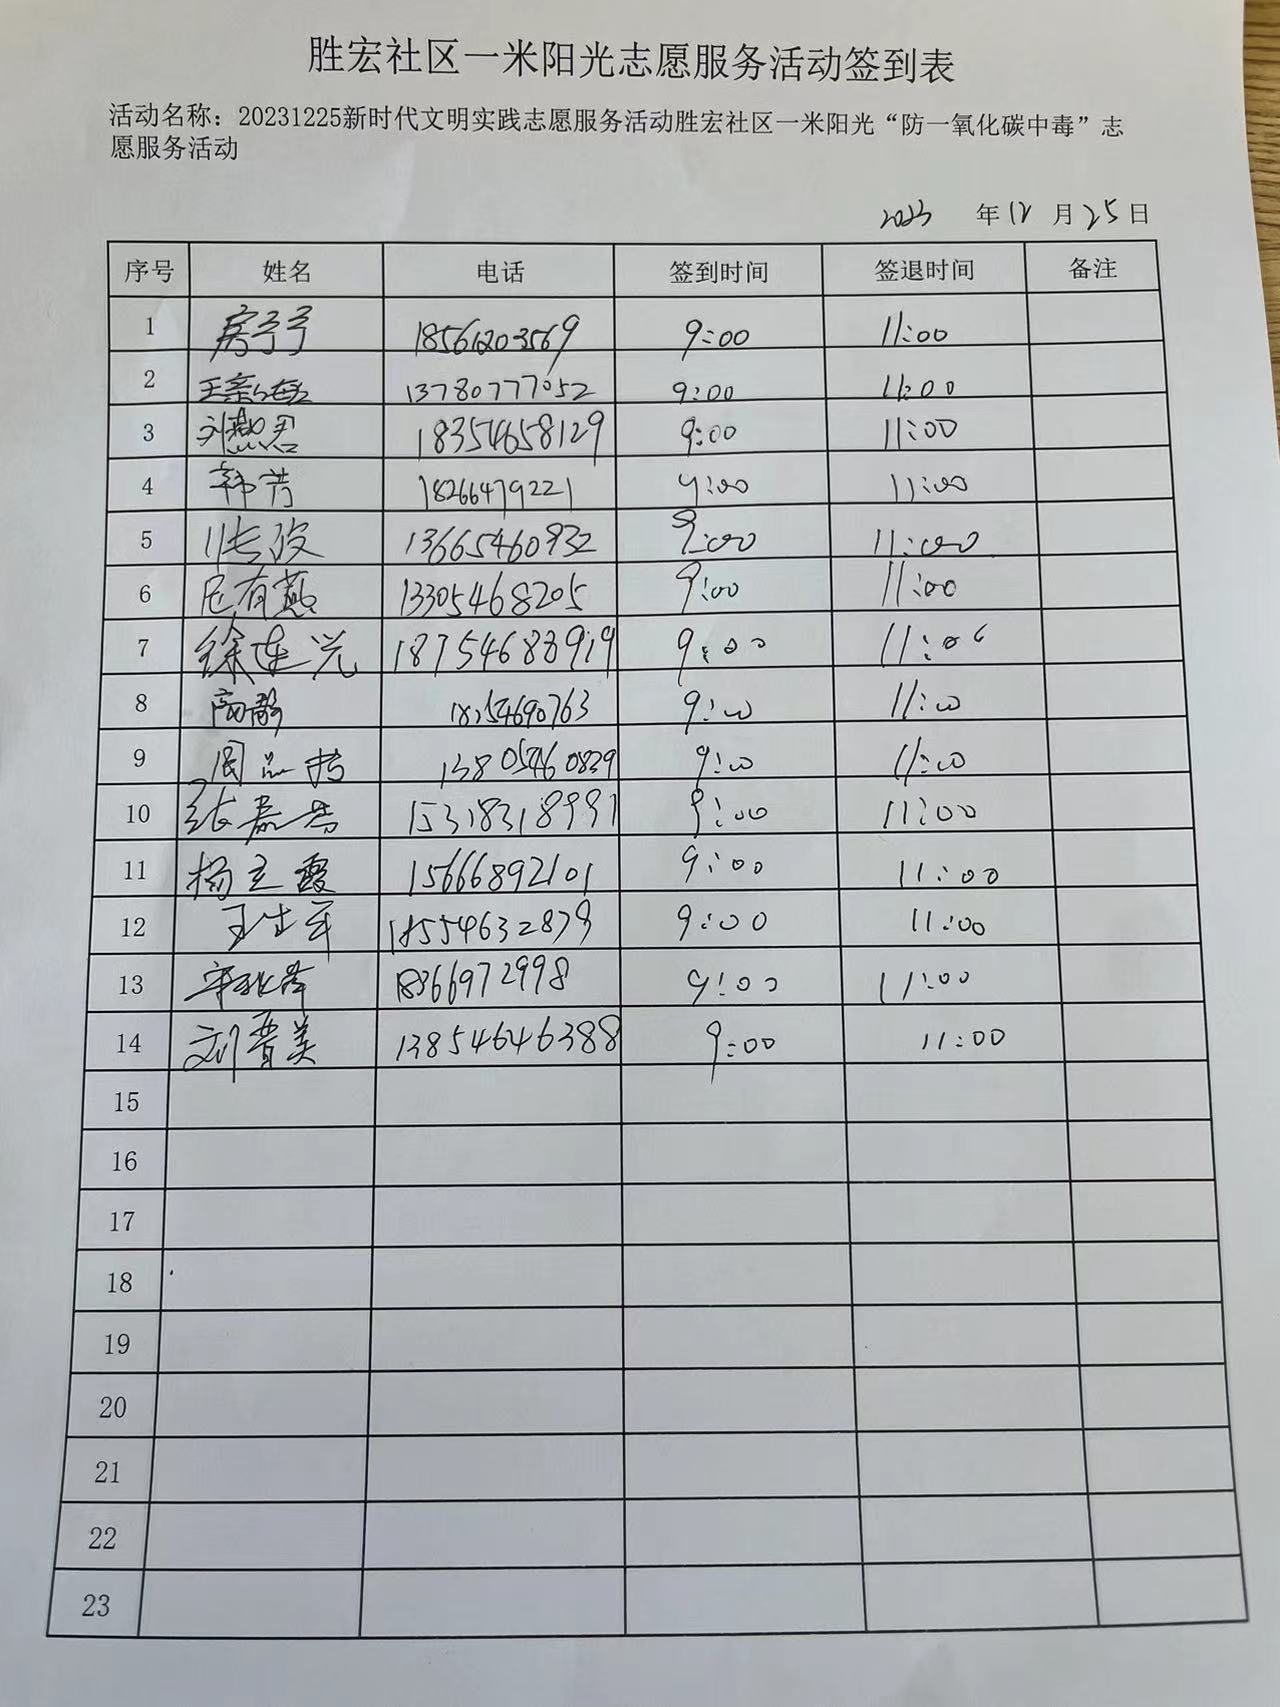 胜宏社区一米阳光志愿服务活动签到表
活动名称：20231225新时代文明实践志愿服务活动胜宏社区一米阳光“防一氧化碳中毒”志
愿服务活动
2023 年 12 月 25 日
序号 姓名 电话 签到时间 签退时间 备注
1 房 18561203569 9:00 11:00
2 王 13780777052 9:00 11:00
3 刘燕君 18354658129 9:00 11:00
4 韩芳 18266479221 9:00 11:00
5 13665460932 9:00 11:00
6 尼有燕 13305468205 9:00 11:00
7 徐连兴 18754683919 9:00 11:00
8 高静 18254690763 9:00 11:00
9 周 13805460829 9:00 11:00
10 张 15318318991 9:00 11:00
11 杨立霞 15666892101 9:00 11:00
12 王 18554632879 9:00 11:00
13 18366972998 9:00 11:00
14 刘晋美 13854646388 9:00 11:00
15
16
17
18
19
20
21
22
23